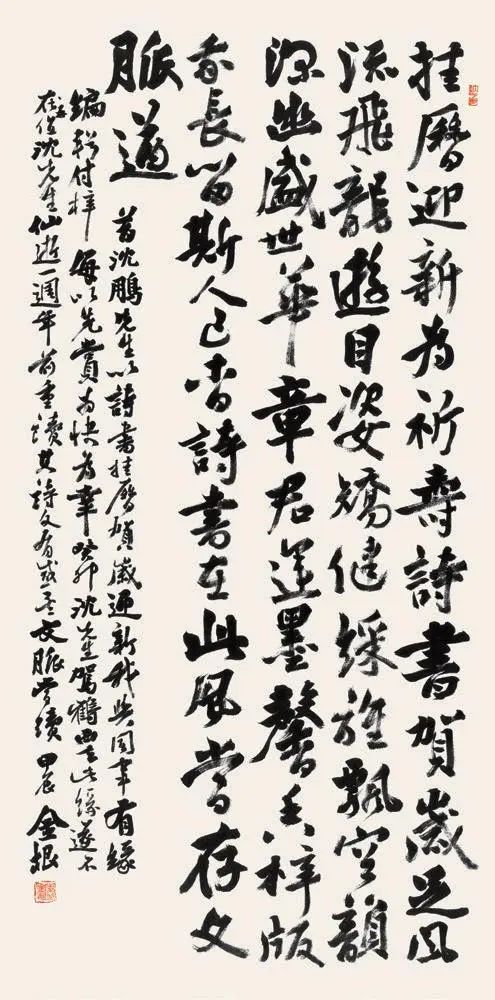 挂曆迎新为祈壽詩書賀歲足風
流飛龍遊目姿矯健綵旌飄空韻
深幽盛世華章君運墨馨香梓版
我長留斯人已杳詩書在此風常存文
脈遒
昔沈鵬先生以詩書挂曆賀歲迎新我與同事有緣
編輯付梓每以先賞为快为幸癸卯沈先生駕鶴西去此緣遂不
在值沈先生仙逝一週年前重讀其詩文有感文脈常續甲辰金根